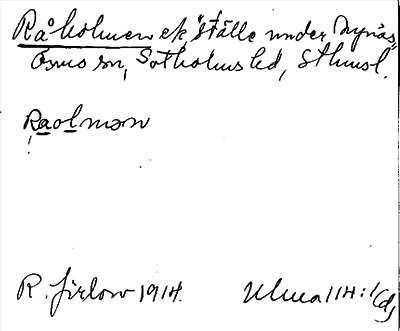 Råholmen ek, "ställe under Nynäs"
Ösmo sn, Sotholms hd, Sthmsl.
Raolmən
R. Jirlow 1914. Ulma 114:1(d)